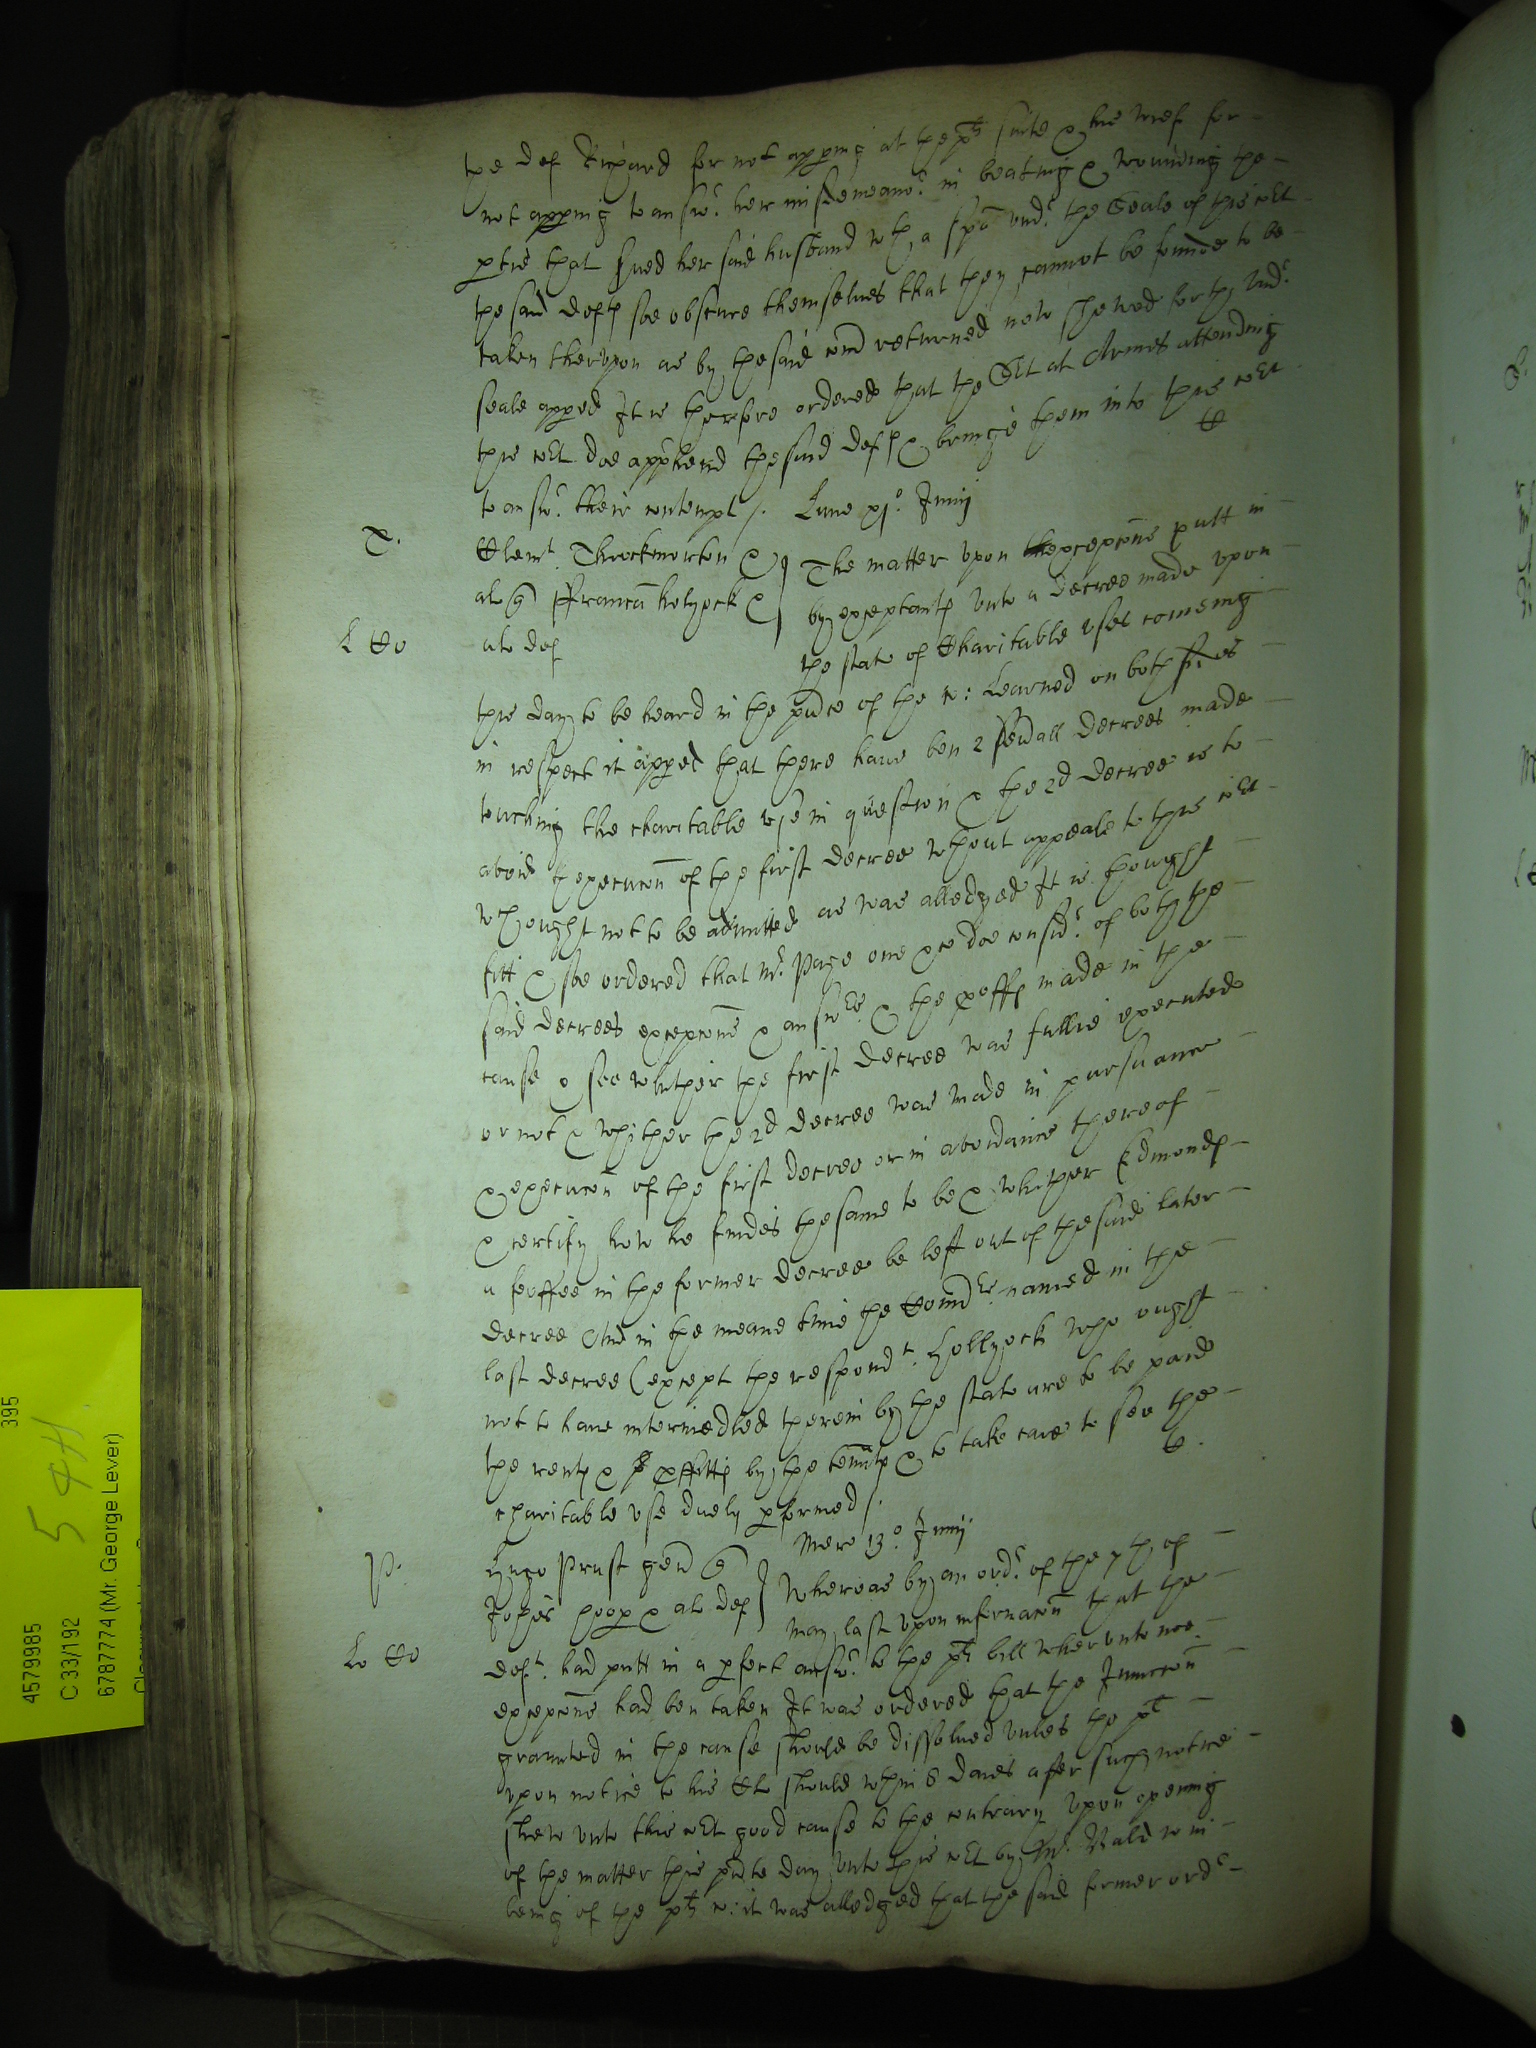 the def Richard for not apping at the plts suite & the wief for
not apping to answr. her misdemeanor. in beating & wounding the
ptie that srved her said husband wth a spa undr. the Seale of this cort
the said defts soe obscure themselves that they cannot be founde to be
taken therupon as by the said comd returned now shewed forth undr.
seale apped It is therefore ordered that the Sert at Armes attending
this cort doe apprhend the said defts & bringe them into this cort
to answr. their contempt /.
Lune xjo. Junij
T.
Clemt. Throckmorton &
al q Francn holyock &
als def
L Co
The matter upon thexcepcons putt in
by exceptants unto a decree made upon
the state of Charitable uses comeing
this day to be heard in the pnce of the co: Learned on both sides
in respect it apped that there have ben 2 sevall decrees made
touching the charitable use in question & the 2d decree is to
avoid thexecucon of the first decree wthout appeale to this cort
wch ought not to be admitted as was alledged It is thought
fitt & soe ordered that Mr. Page one &c doe considr. of both the
said decrees excepcons & answers & the proffs made in the
cause & see whither the first decree was fullie executed
or not & whither the 2d decree was made in pursuance
& execucon of the first decree or in avoidance thereof
& certify how he findes the same to be & whither Edmonds
a feoffee in the former decree be left out of the said later
decree And in the meane time the Comrs. named in the
last decree (except the respondt. Hollyock who ought
not to have intermedled therein by the state are to be paid
the rents & pffitts by the tennts & to take care to see the
charitable use duely pformed /.
Mercr 13o. Junij
P.
Hugo Prust gen q
Johes Hoop & als def
Lo Co
Whereas by an ordr. of the 7th of
may last upon informacon that the
deft. had putt in a pfect answr. to the plts bill wherunto noe
excepcons had ben taken It was ordered that the Iniuncon
graunted in the cause should be dissolved unles the plt
upon notice to his Cle should wthin 8 daies after such notice
shew unto this cort good cause to the contrary upon opening
of the matter this pnte day unto this cort by Mr. Baldwin
being of the plts co: it was alledged that the said former ordr
395
54H
4579985
C 33/192
6787774 (Mr. George Lever)